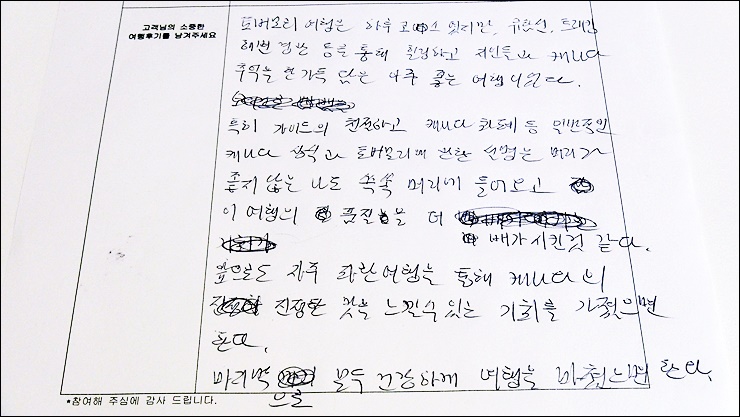 고객님의 소중한
여행후기를 남겨주세요
토버모리 여행은 하루 코스 였지만, 유람선, 트래킹
해변 경관 등을 통해 힐링하고 지인들과 캐나다
추억을 한가득 담은 아주 좋은 여행이었다.
특히 가이드의 친절하고 캐나다 화폐 등 일반적인
캐나다 상식과 토버모리에 관한 설명은 머리가
좋지 않은 나도 쏙쏙 머리에 들어오고
이 여행의 품질을 더
배가 시킨것 같다.
앞으로도 자주 관 여행을 통해 캐나다의
진정한 맛을 느낄수 있는 기회를 가졌으면
한다.
마지막으로 모두 건강하게 여행을 마쳤으면 한다.
*참여해 주심에 감사 드립니다.